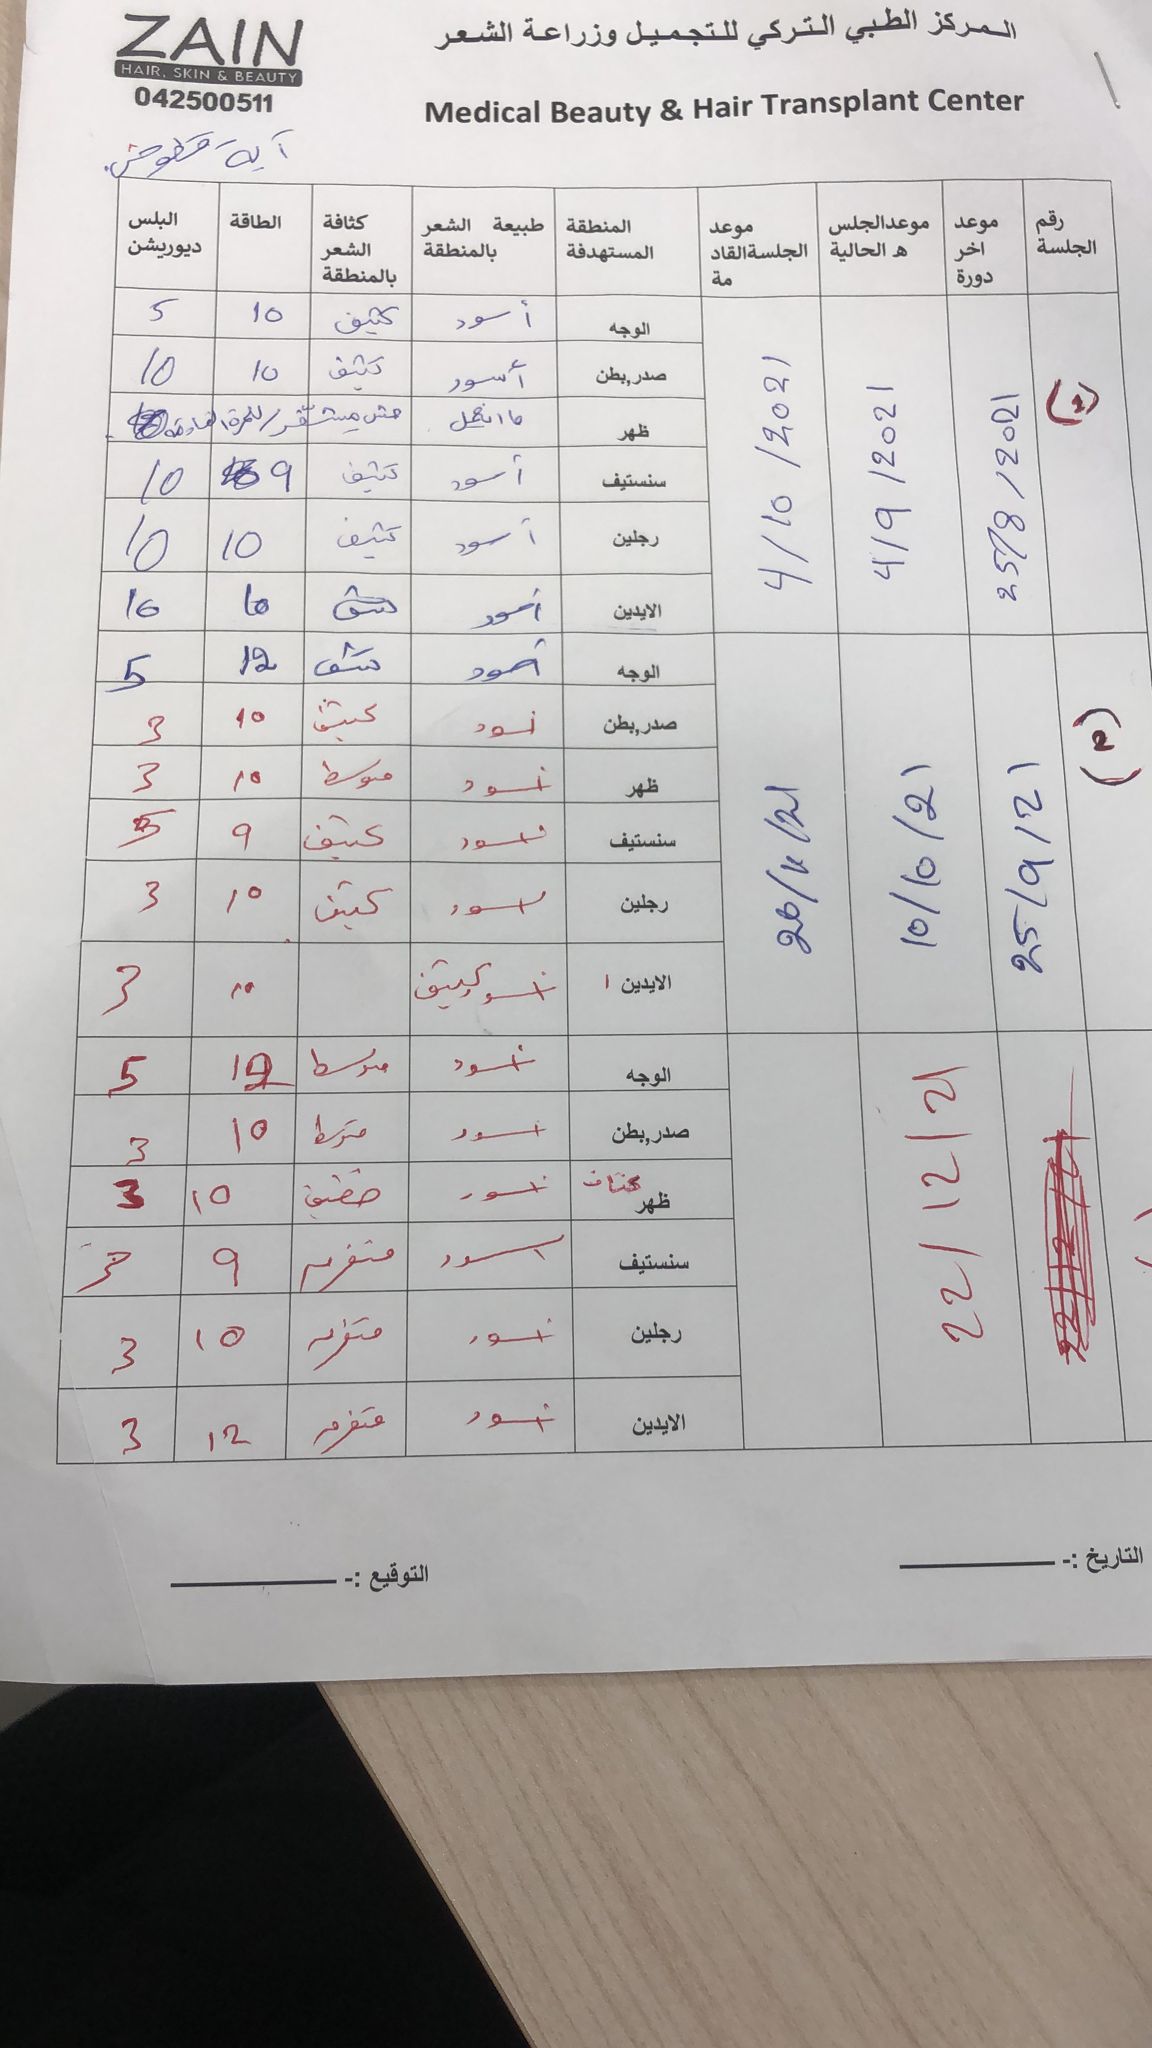 ZAIN
HAIR, SKIN & BEAUTY
042500511
المركز الطبي التركي للتجميل وزراعة الشعر
Medical Beauty & Hair Transplant Center
آية
رقم الجلسة موعد اخر دورة موعدالجلس ه الحالية موعد الجلسةالقاد مة المنطقة المستهدفة طبيعة الشعر بالمنطقة كثافة الشعر بالمنطقة الطاقة البلس ديوريشن
(1) 25/8/2021 4/9/2021 4/10/2021
الوجه أسود كثيف 10 5
صدر,بطن أسود كثيف 10 10
ظهر
سنستيف أسود كثيف 9 10
رجلين أسود كثيف 10 10
الايدين أسود 10
(2) 25/9/21 10/10/21
الوجه 12 5
صدر,بطن اسود كثيف 10 3
ظهر اسود متوسط 10 3
سنستيف اسود كثيف 9 5
رجلين اسود كثيف 10 3
الايدين اسود كثيف 10 3
22/12/21
الوجه اسود متوسط 12 5
صدر,بطن اسود متوسط 10 3
ظهر اسود خفيف 10 3
سنستيف اسود 9 3
رجلين اسود 10 3
الايدين اسود 12 3
التاريخ :-
التوقيع :-